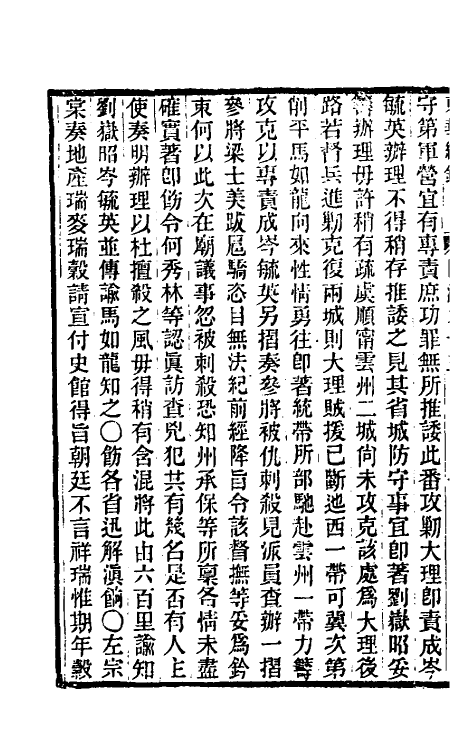 守第軍營宜有專責庶功罪無所推諉此番攻勦大理卽責成岑
毓英辦理不得稍存推諉之見其省城防守事宜卽著劉嶽昭妥
籌辦理毋許稍有疏虞順甯雲州二城尙未攻克該處爲大理後
路若督兵進勦克復兩城則大理賊援已斷迤西一帶可冀次第
削平馬如龍向來性情勇往卽著統帶所部馳赴雲州一帶力籌
攻克以專責成岑毓英另摺奏參將被仇刺殺見派員查辦一摺
參將梁士美跋扈驕恣目無法紀前經降旨令該督撫等妥爲鈐
束何以此次在廟議事忽被刺殺恐知州承保等所稟各情未盡
確實著卽飭令何秀林等認眞訪查兇犯共有幾名是否有人主
使奏明辦理以杜擅殺之風毋得稍有含混將此由六百里諭知
劉嶽昭岑毓英並傳諭馬如龍知之〇飭各省迅解滇餉〇左宗
棠奏地產瑞麥瑞穀請宣付史館得旨朝廷不言祥瑞惟期年穀